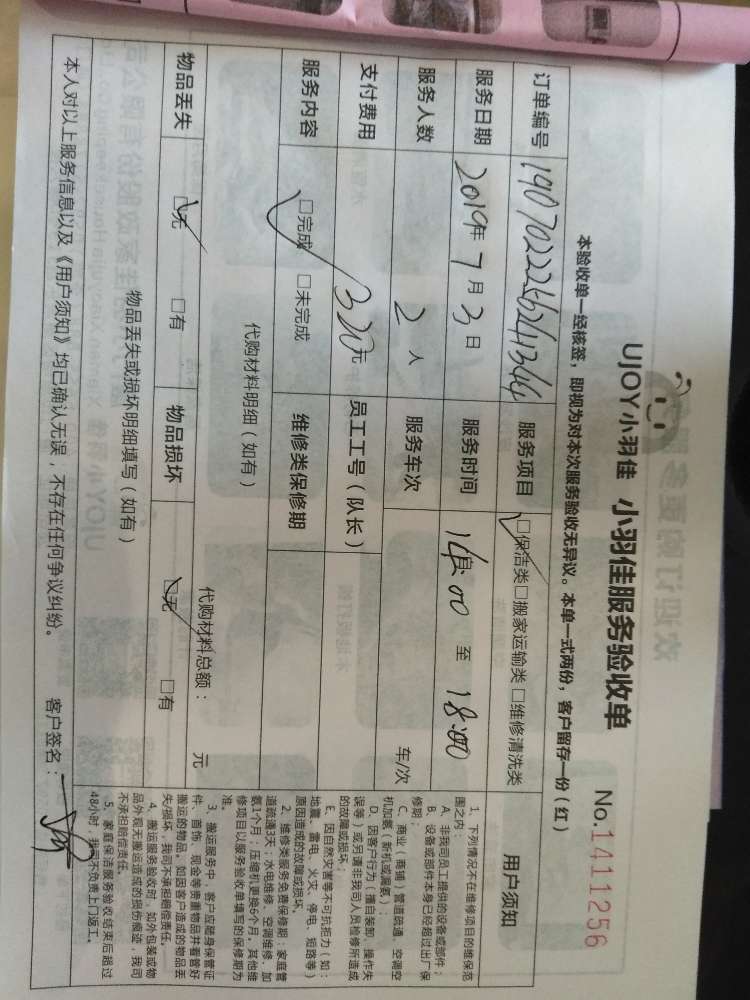 UJOY小羽佳 小羽佳服务验收单
No.1411256
本验收单一经核签，即视为对本次服务验收无异议。本单一式两份，客户留存一份（红）
订单编号 1907022256241344 服务项目 □保洁类 □搬家运输类 □维修清洗类
服务日期 2019年7月3日 服务时间 14:00 至 18:00
服务人数 2人 服务车次 车/次
支付费用 320元 员工工号（队长）
服务内容 □完成 □未完成 维修类保修期
代购材料明细（如有） 代购材料总额： 元
物品丢失 □无 □有 物品损坏 □无 □有
物品丢失或损坏明细填写（如有）
本人对以上服务信息以及《用户须知》均已确认无误，不存在任何争议纠纷。 客户签名：
用户须知
1、下列情况不在维修项目的维保范
围之内：
A、非我司员工提供的设备或部件；
B、设备或部件本身已经超过出厂保
修期；
C、商业（商铺）管道疏通、空调空
机加氨（新机或漏氨）；
D、因客户行为（擅自装卸、操作失
误等）或另请非我司人员检修所造成
的故障或损坏；
E、因自然灾害等不可抗拒力（如：
地震、雷电、火灾、停电、短路等）
原因造成的故障或损坏。
2、维修类服务免费保修期：家庭管
道疏通3天，水电维修、空调维修、加
氨1个月；压缩机更换6个月，其他维
修项目以服务验收单填写的保修期为
准。
3、搬运服务中，客户应随身保管证
件、首饰、现金等贵重物品并看管好
搬运的物品。如因客户造成的物品丢
失/损坏，我司不承担赔偿责任。
4、搬运服务验收时，如外包装或物
品外观无搬运造成的损伤痕迹，我司
不承担赔偿责任。
5、家庭保洁服务验收结束后超过
48小时，我司不负责上门返工。